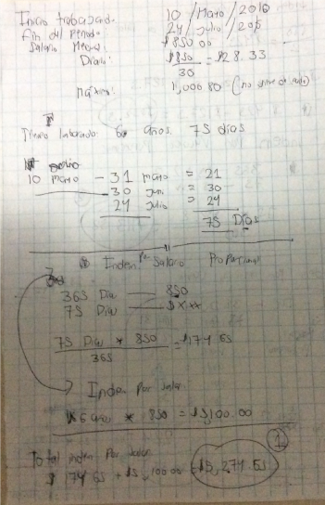 Inicio trabajador 10 / Mayo / 2010
fin del periodo 24 / Julio / 20
Salario Mens: $850.00
Diario: $850 = $28.33
30
Máximo: 1,000.80 (no
Tiempo laborado 6 años. 75 días
10 Mayo - 31 mayo = 21
30 Juni = 30
24 Julio = 24
75 Días
Indem Por Salario Proporcional
365 Dias 850
75 Dias $ X
75 Dias * 850 = $174.65
365
Indem Por Salar
6 años * 850 = $5,100.00
1
Total Indem Por Salar
$ 174.65 + $5,100.00 = $5,274.65